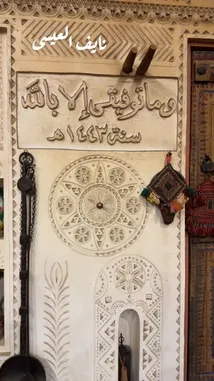 نايف العيسى
وما توفيقي إلا بالله
سنة ١٤٤٣هـ